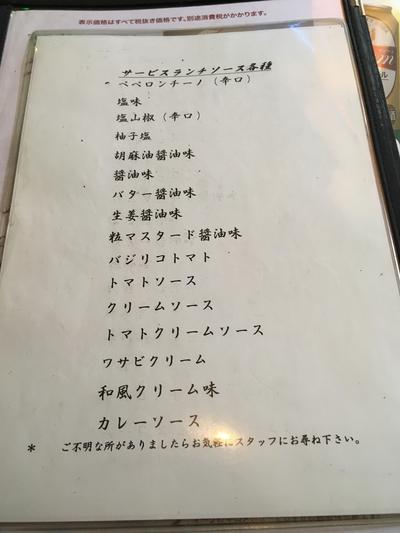 表示価格はすべて税抜き価格です。別途消費税がかかります。
サービスランチソース各種
ペペロンチーノ（辛口）
塩味
塩山椒（辛口）
柚子塩
胡麻油醤油味
醤油味
バター醤油味
生姜醤油味
粒マスタード醤油味
バジリコトマト
トマトソース
クリームソース
トマトクリームソース
ワサビクリーム
和風クリーム味
カレーソース
* ご不明な所がありましたらお気軽にスタッフにお尋ね下さい。